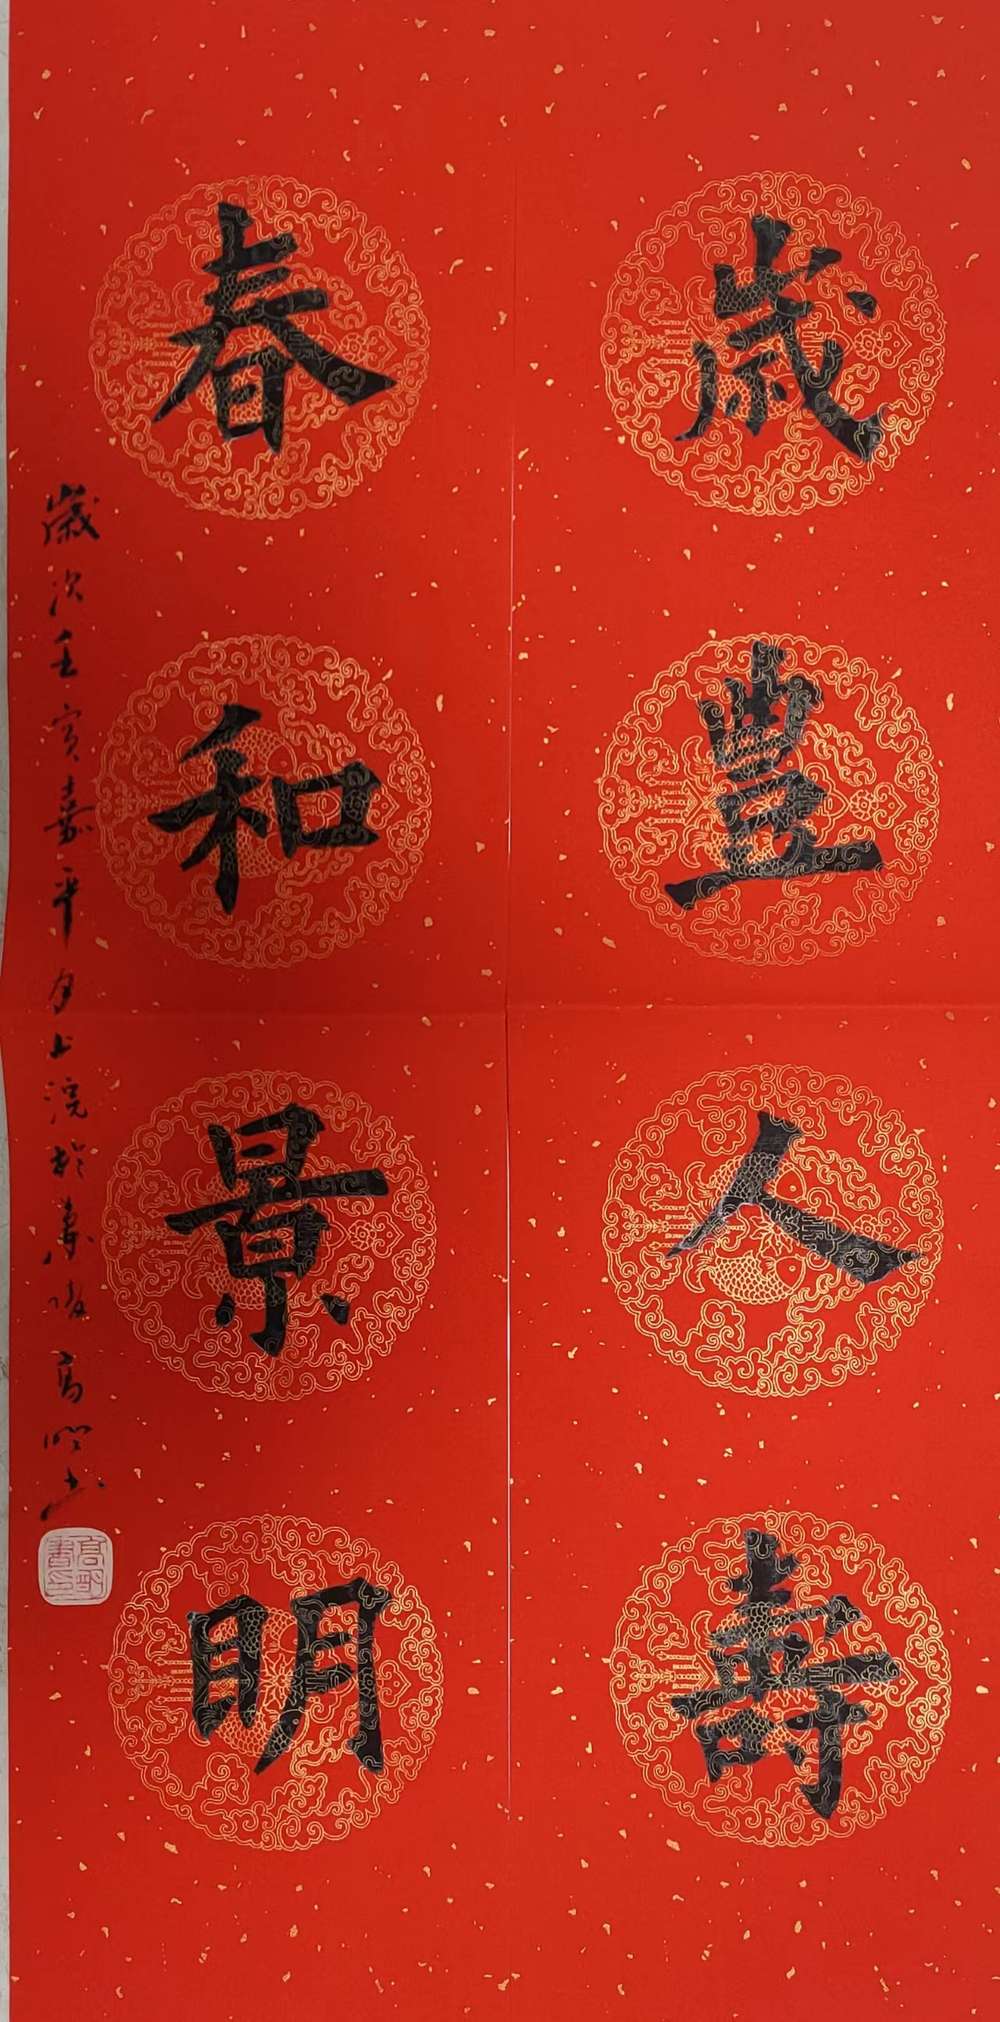 歲豐人壽
春和景明
歲次壬寅嘉平月上浣於
高明書
高明書印